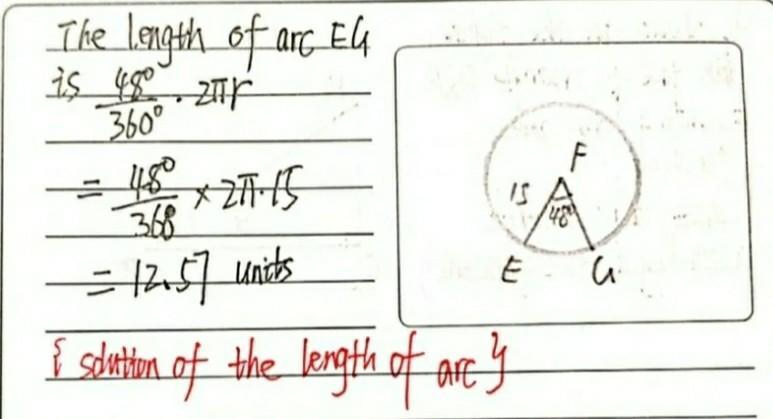 The length of arc EG
is 48°/360° · 2πr
= 48°/360 × 2π·15
= 12.57 units
F
15
48°
E G
{ solution of the length of arc }